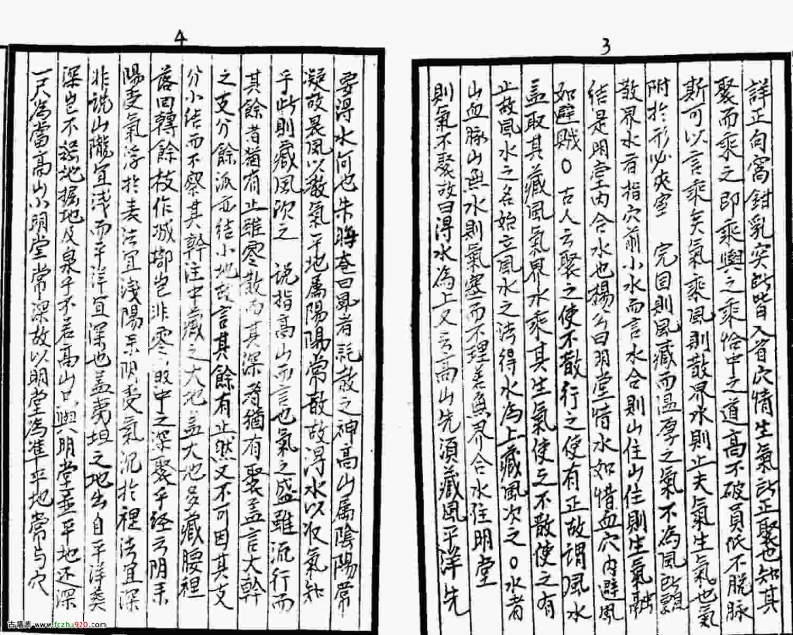 3
詳正向窩鉗乳突所皆入首穴情生氣所正聚也知其
聚而乘之即乘輿之乘恰中之道高不破員低不脫脉
斯可以言乘矣氣乘風則散界水則止夫氣生氣也氣
附於形必夾室 完固則風藏而溫厚之氣不為風所飄
散界水者指穴前小水而言水合則山住山住則生氣融
結是明堂內合水也楊公曰明堂惜水如惜血穴內避風
如避賊○古人云聚之使不散行之使有正故謂風水
蓋取其藏風氣界水乘其生氣使之不散使之有
止故風水之名始立風水之法得水為上藏風次之○水者
山血脉山無水則氣塞而不理若無界合水住明堂
則氣不聚故曰得水為上又云高山先須藏風平洋先
4
要得水何也朱晦庵曰風者耗散之神高山屬陰陽常
凝故畏風以散氣平地屬陽陽常散故得水以收氣知
乎此則藏風次之 說指高山而言也氣之盛雖流行而
其餘者猶有止雖零散而其深者猶有聚蓋言大幹
之支分餘派亦結小地故言其餘有止然又不可因其支
分小結而不察其幹注中藏之大地蓋大地多藏腰裡
落回轉餘枝作城都豈非零散中之深聚乎經云陰來
陽受氣浮於表法宜淺陽來陰受氣沉於裡法宜深
非說山隴宜淺而平洋宜深也蓋夷坦之地出自平洋葬
深豈不濕地掘地及泉乎不若高山只與明堂並平地还深
一尺為當高山小明堂常深故以明堂為準平地常与穴
古籍 www.fczhu920.com